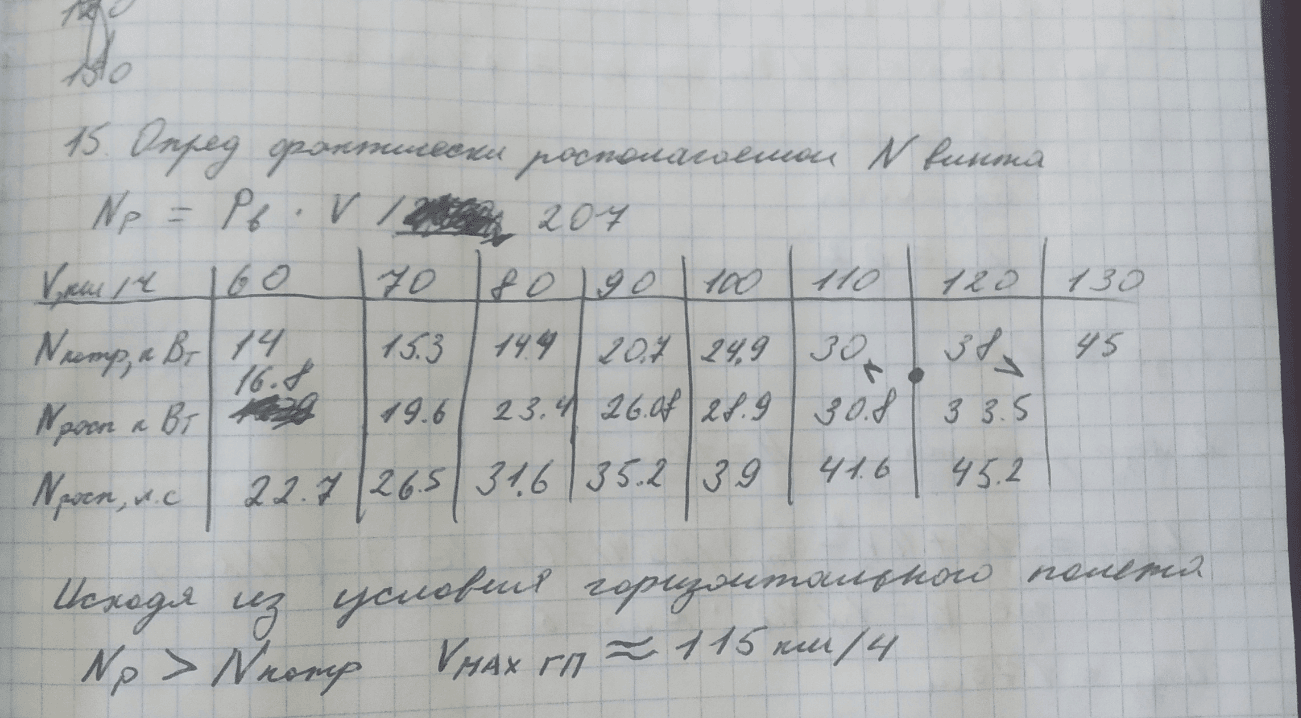 120
130
15. Опред фактически располагаемой N винта
Nр = Рв · V / 207
V, км/ч 60 70 80 90 100 110 120 130
Nпотр, к Вт 14 15.3 14.4 20.7 24.9 30 < 38 > 45
16.8
Nрасп к Вт 19.6 23.4 26.08 28.9 30.8 33.5
Nрасп, л.с 22.7 26.5 31.6 35.2 39 41.6 45.2
Исходя из условия горизонтального полета
Nр > Nпотр Vмах гп ≈ 115 км/ч